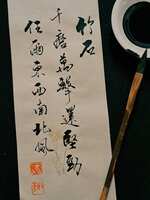 竹石
千磨萬擊還堅勁
任爾東西南北風